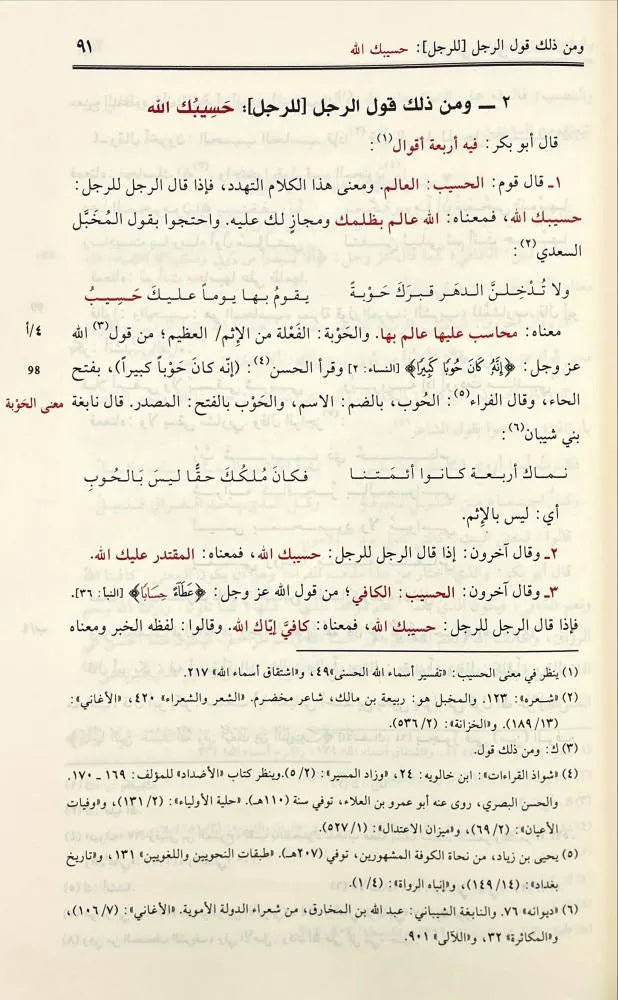 ومن ذلك قول الرجل [للرجل]: حسيبك الله ٩١
٢ ــ ومن ذلك قول الرجل [للرجل]: حَسِيبُك الله
قال أبو بكر: فيه أربعة أقوال(١):
١ـ قال قوم: الحسيب: العالم. ومعنى هذا الكلام التهدد، فإذا قال الرجل للرجل:
حسيبك الله، فمعناه: الله عالم بظلمك ومجازٍ لك عليه. واحتجوا بقول المُخَبَّل
السعدي(٢):
ولا تُدْخِلنَّ الدهرَ قبرَكَ حَوْبةً يقومُ بها يوماً عليكَ حَسِيبُ
معناه: محاسب عليها عالم بها. والحَوْبة: الفَعْلة من الإثم/ العظيم؛ من قول(٣) الله ٤/أ
عز وجل: ﴿إِنَّهُ كَانَ حُوبًا كَبِيرًا﴾ [النساء: ٢] وقرأ الحسن(٤): (إنّه كانَ حَوْباً كبيراً)، بفتح 98
الحاء، وقال الفراء(٥): الحُوب، بالضم: الاسم، والحَوْب بالفتح: المصدر. قال نابغة معنى الحَوْبة
بني شيبان(٦):
نماك أربعة كانوا أئمتنا فكانَ مُلكُكَ حقًّا ليسَ بَالحُوبِ
أي: ليس بالإثم.
٢ـ وقال آخرون: إذا قال الرجل للرجل: حسيبك الله، فمعناه: المقتدر عليك الله.
٣ـ وقال آخرون: الحسيب: الكافي؛ من قول الله عز وجل: ﴿عَطَآءً حِسَابًا﴾ [النبا: ٣٦].
فإذا قال الرجل للرجل: حسيبك الله، فمعناه: كافيَّ إيّاك الله. وقالوا: لفظه الخبر ومعناه
(١) ينظر في معنى الحسيب: «تفسير أسماء الله الحسنى» ٤٩، و«اشتقاق أسماء الله» ٢١٧.
(٢) «شعره»: ١٢٣. والمخبل هو: ربيعة بن مالك، شاعر مخضرم. «الشعر والشعراء» ٤٢٠، «الأغاني»:
(١٣/ ١٨٩). و«الخزانة»: (٢/ ٥٣٦).
(٣) ك: ومن ذلك قول.
(٤) «شواذ القراءات»: ابن خالويه: ٢٤، «وزاد المسير»: (٢/ ٥). وينظر كتاب «الأضداد» للمؤلف: ١٦٩ ـ ١٧٠.
والحسن البصري، روى عنه أبو عمرو بن العلاء، توفي سنة (١١٠هـ). «حلية الأولياء»: (٢/ ١٣١)، و«وفيات
الأعيان»: (٢/ ٦٩)، و«ميزان الاعتدال»: (١/ ٥٢٧).
(٥) يحيى بن زياد، من نحاة الكوفة المشهورين، توفي (٢٠٧هـ). «طبقات النحويين واللغويين» ١٣١، و«تاريخ
بغداد»: (١٤/ ١٤٩)، و«إنباه الرواة»: (٤/ ١).
(٦) «ديوانه» ٧٦. والنابغة الشيباني: عبد الله بن المخارق، من شعراء الدولة الأموية. «الأغاني»: (٧/ ١٠٦)،
و«المكاثرة» ٣٢، و«اللآلى» ٩٠١.